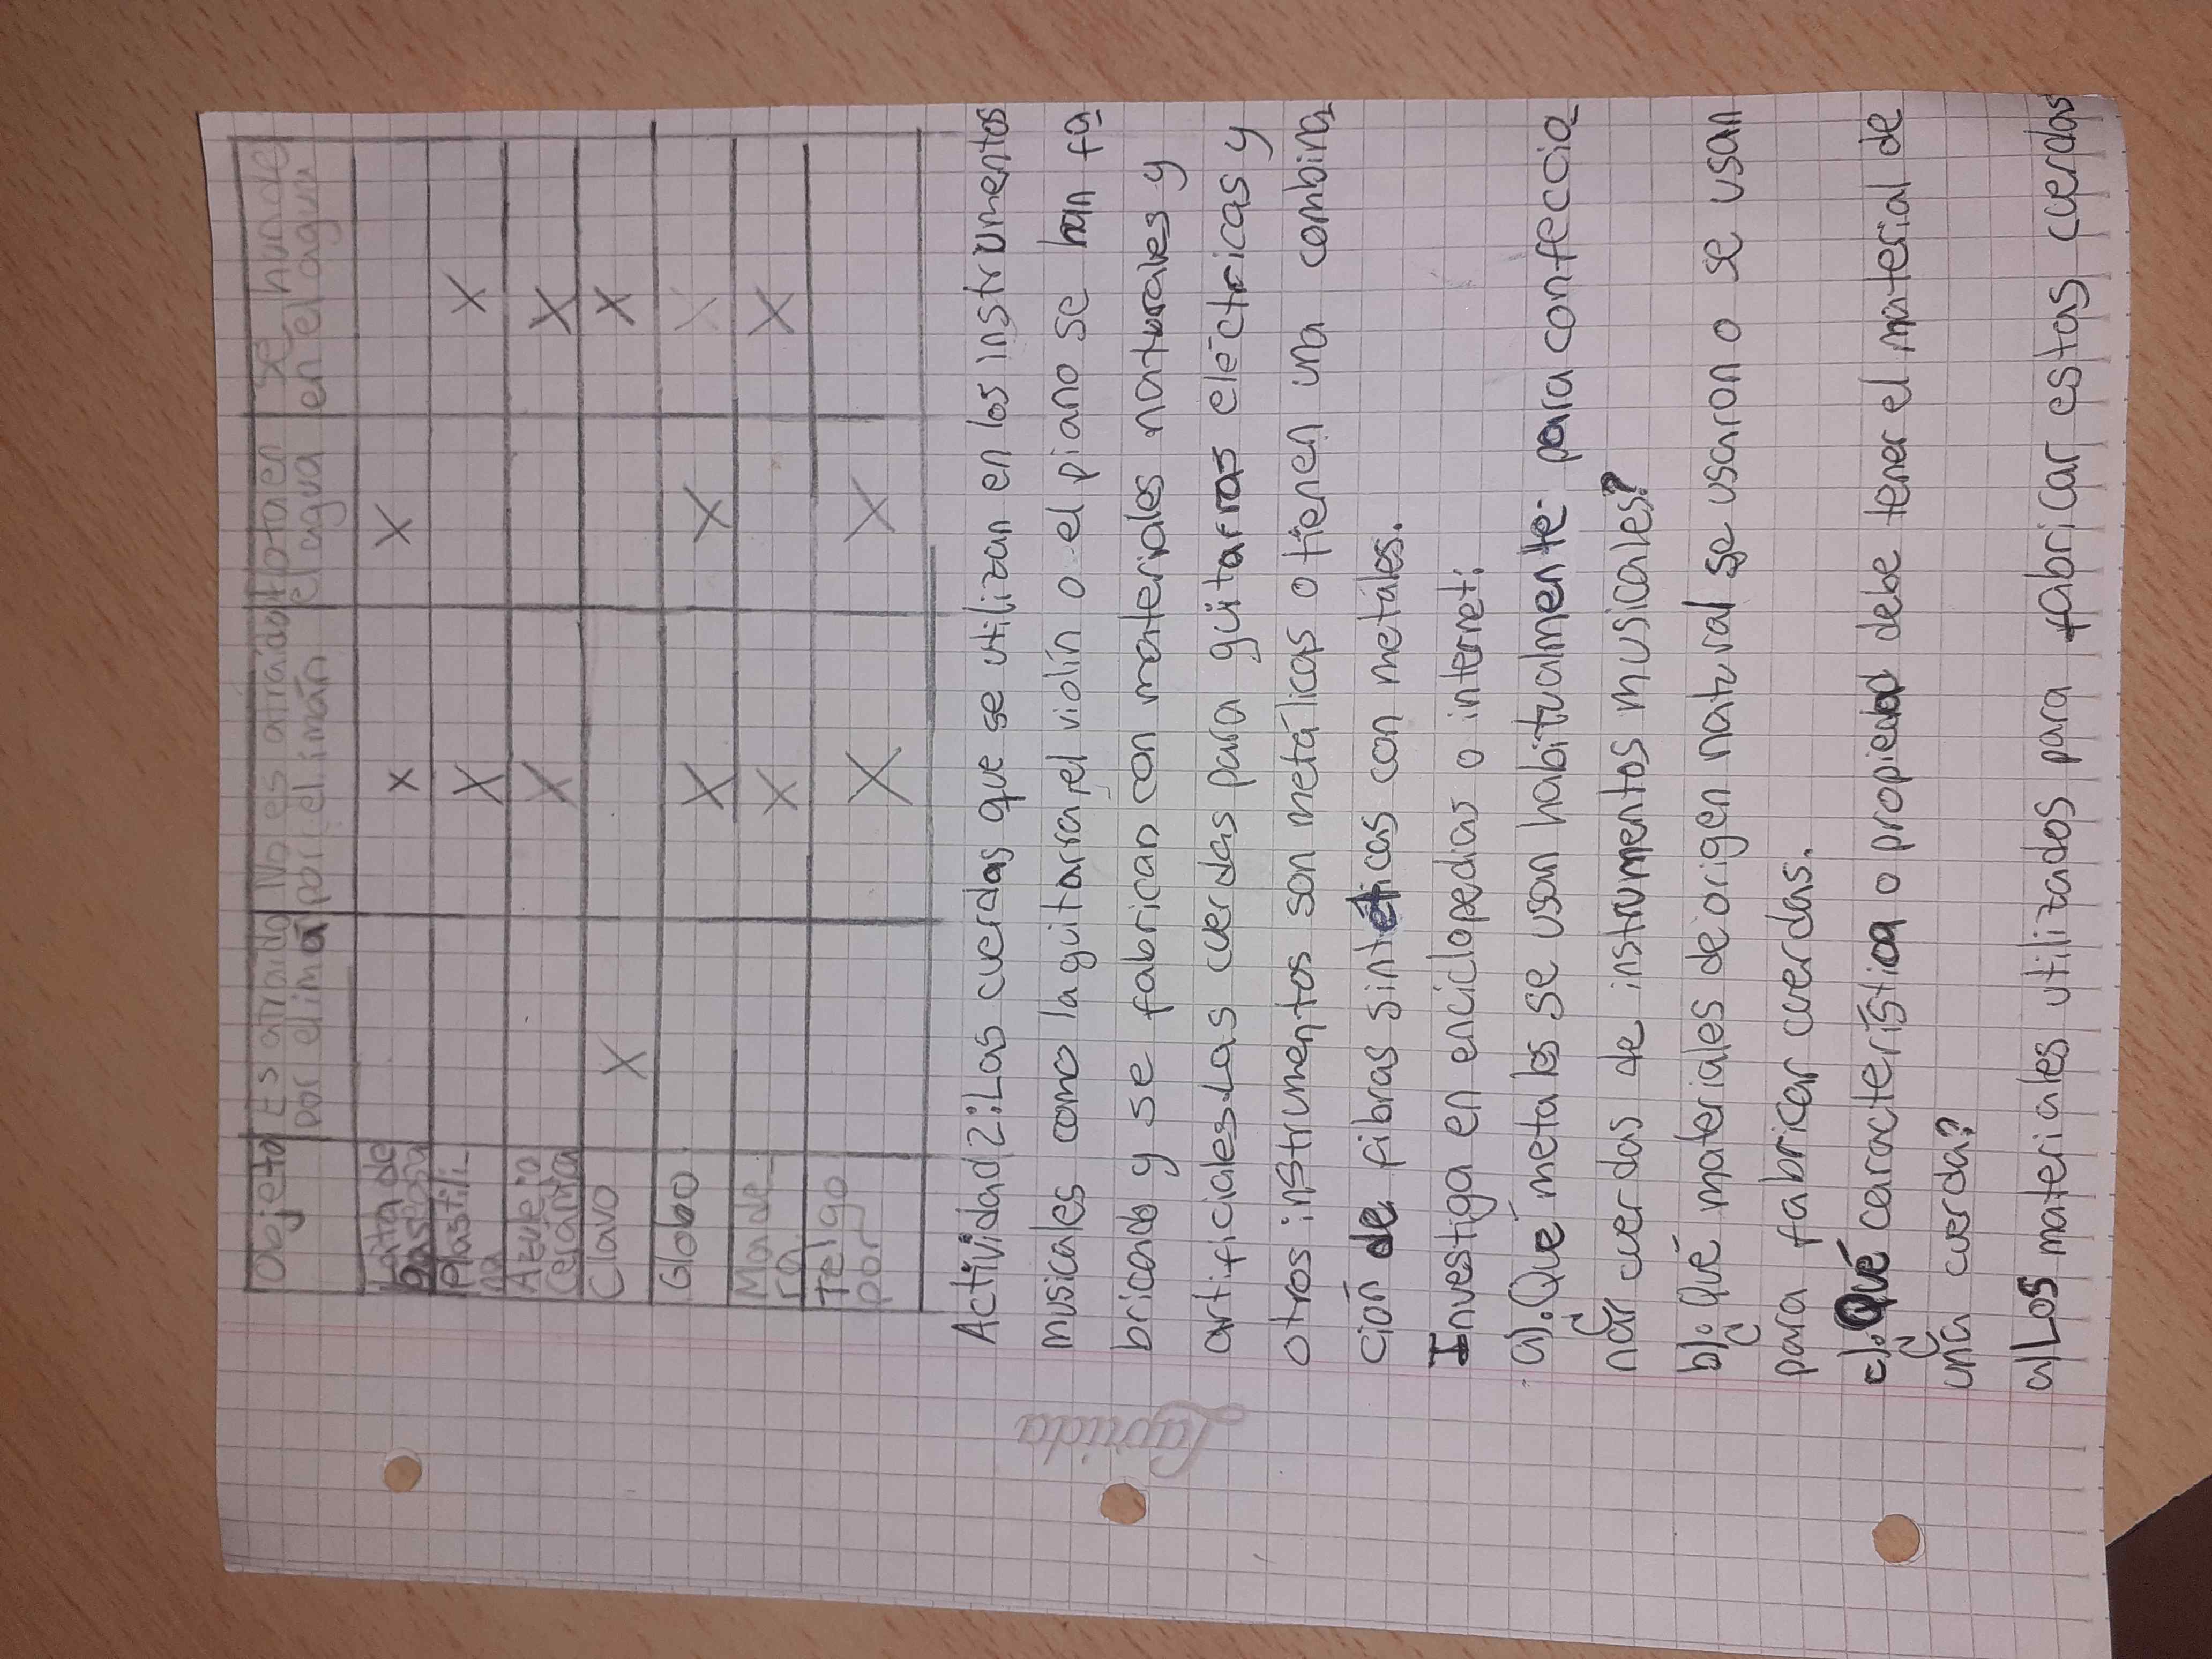 Objeto Es atraído por el imán No es atraído por el imán flota en el agua se hunde en el agua
Latita de gaseosa X X
Plastili_na X X
Azulejo Cerámica X X
Clavo X X
Globo X X
Made_ra X X
Telgopor X X
Actividad 2: Las cuerdas que se utilizan en los instrumentos
musicales como la guitarra, el violín o el piano se han fa_
bricado y se fabrican con materiales naturales y
artificiales. Las cuerdas para guitarras eléctricas y
otros instrumentos son metálicas o tienen una combina_
ción de fibras sintéticas con metales.
Investiga en enciclopedias o internet:
a) ¿Qué metales se usan habitualmente para confeccio_
nar cuerdas de instrumentos musicales?
b) ¿Qué materiales de origen natural se usaron o se usan
para fabricar cuerdas.
c) ¿Qué característica o propiedad debe tener el material de
una cuerda?
a) Los materiales utilizados para fabricar estas cuerdas
Laprida